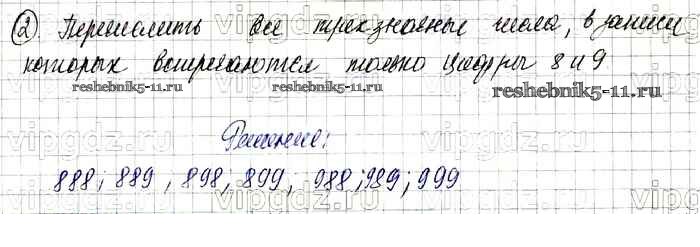 ② Перечислить все трехзначные числа, в записи
которых встречаются только цифры 8 и 9
reshebnik5-11.ru reshebnik5-11.ru reshebnik5-11.ru
Решение:
888; 889, 898; 899, 988; 989; 999
vipgdz.ru